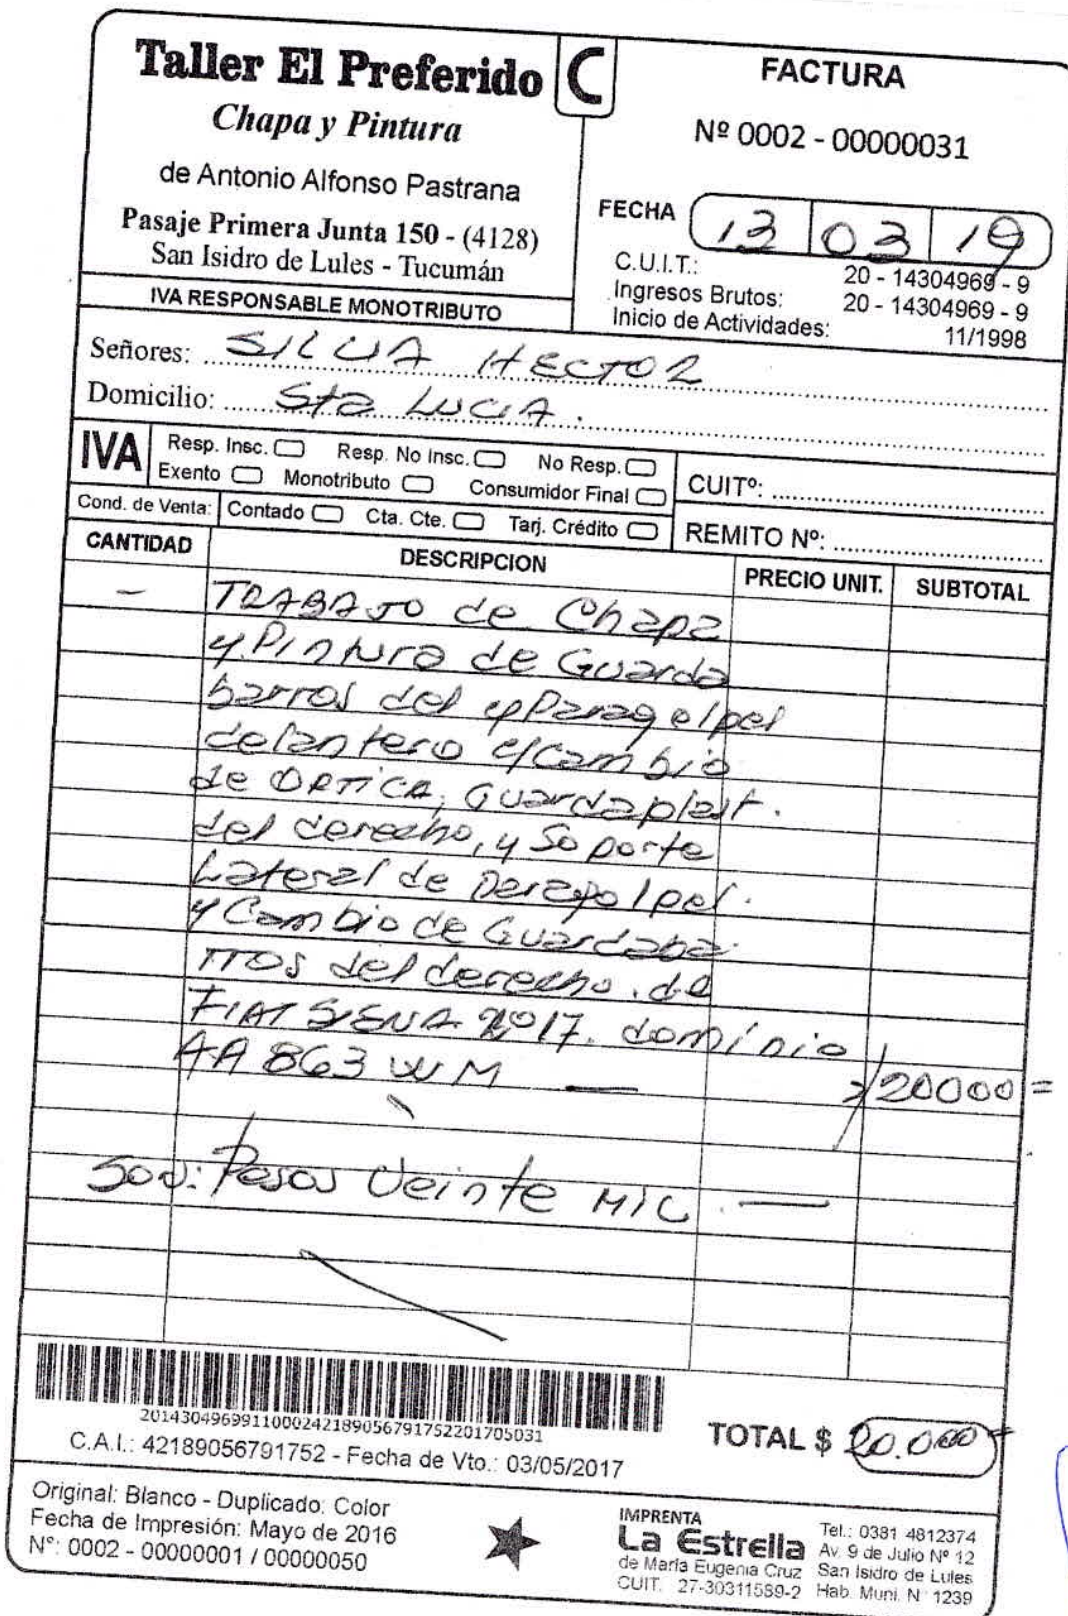 Taller El Preferido
Chapa y Pintura
de Antonio Alfonso Pastrana
Pasaje Primera Junta 150 - (4128)
San Isidro de Lules - Tucumán
IVA RESPONSABLE MONOTRIBUTO
C
FACTURA
Nº 0002 - 00000031
FECHA 13 03 19
C.U.I.T.: 20 - 14304969 - 9
Ingresos Brutos: 20 - 14304969 - 9
Inicio de Actividades: 11/1998
Señores: SILVA HECTOR
Domicilio: Sta LUCIA.
IVA Resp. Insc. Resp. No Insc. No Resp.
Exento Monotributo Consumidor Final
CUITº:
Cond. de Venta: Contado Cta. Cte. Tarj. Crédito
REMITO Nº:
CANTIDAD DESCRIPCION PRECIO UNIT. SUBTOTAL
— TRABAJO de Chapa
y Pintura de Guarda
barros del y Paragolpel
delantero y Cambio
de OPTICA, Guardaplast.
del derecho, y Soporte
Lateral de Paragolpel.
y Cambio de Guardaba
rros del derecho. de
FIAT SIENA 2017. dominio
AA 863 WM — 20000=
Son: Pesos Veinte MIL. —
2014304969911000242189056791752201705031
C.A.I.: 42189056791752 - Fecha de Vto.: 03/05/2017
TOTAL $ 20.000=
Original: Blanco - Duplicado: Color
Fecha de Impresión: Mayo de 2016
N°: 0002 - 00000001 / 00000050
IMPRENTA
La Estrella
de María Eugenia Cruz
CUIT. 27-30311589-2
Tel.: 0381 4812374
Av. 9 de Julio Nº 12
San Isidro de Lules
Hab. Muni. N° 1239